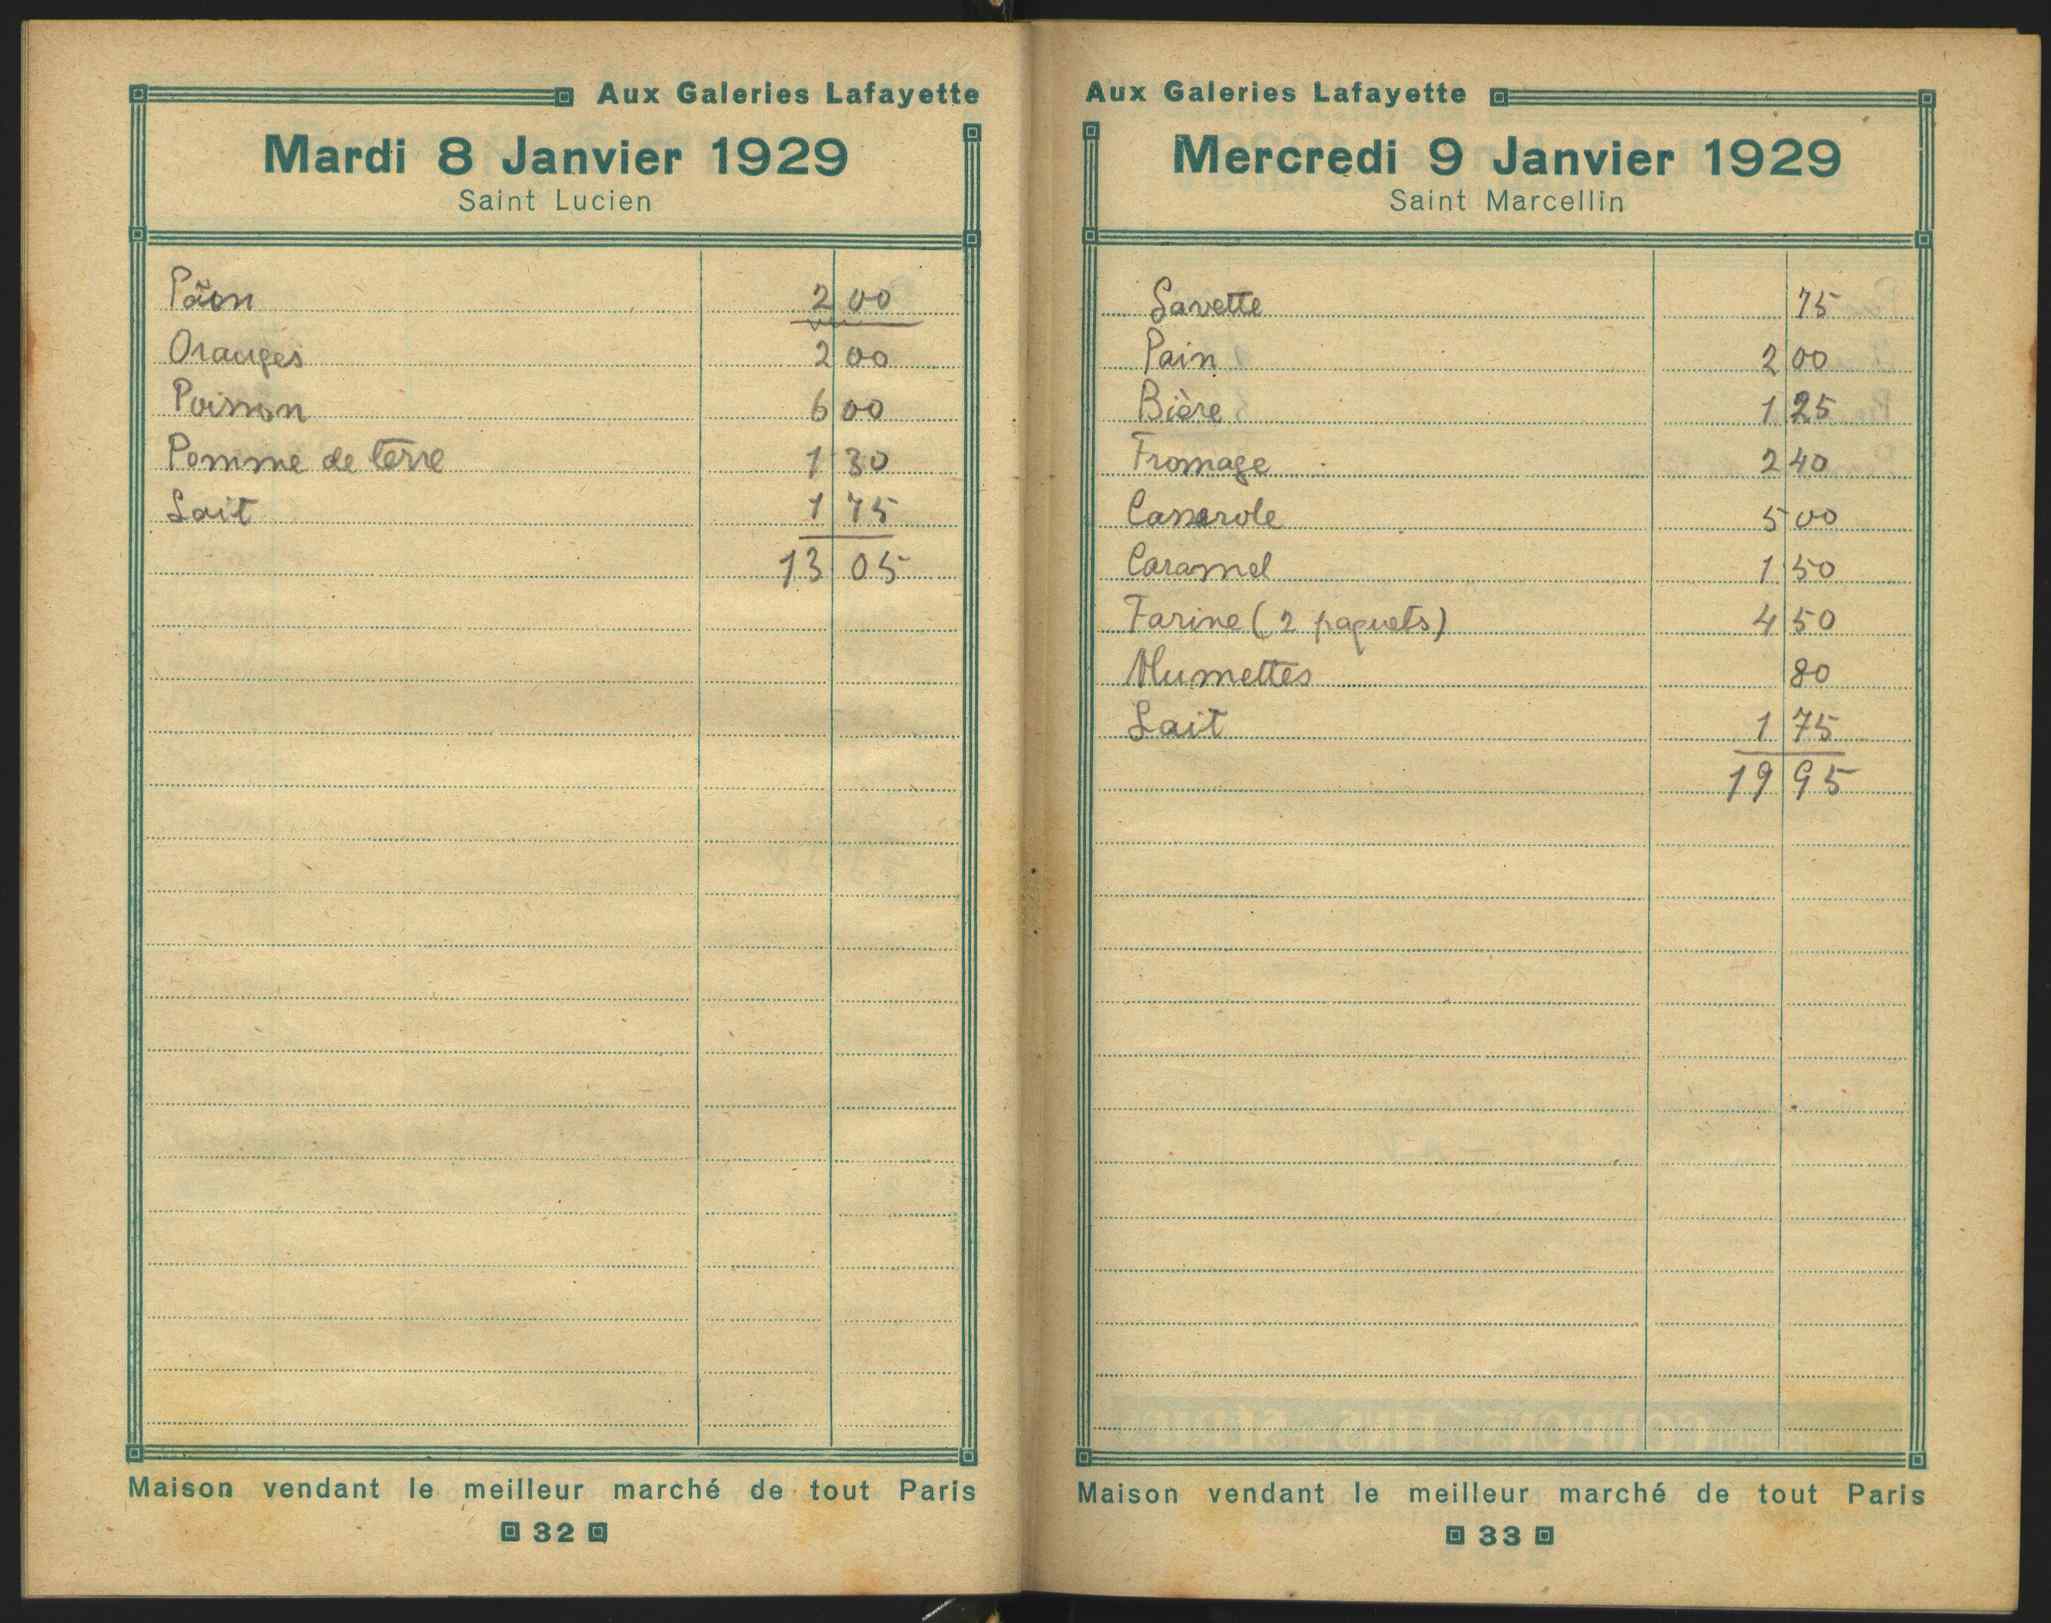 Aux Galeries Lafayette
Mardi 8 Janvier 1929
Saint Lucien
2 00
Oranges 2 00
Poisson 6 00
Pomme de terre 1 30
Lait 1 75
13 05
Maison vendant le meilleur marché de tout Paris
32
Aux Galeries Lafayette
Mercredi 9 Janvier 1929
Saint Marcellin
Lavette 75
Pain 2 00
Bière 1 25
Fromage 2 40
Casserole 5 00
Caramel 1 50
Farine (2 paquets) 4 50
Allumettes 80
Lait 1 75
19 95
Maison vendant le meilleur marché de tout Paris
33